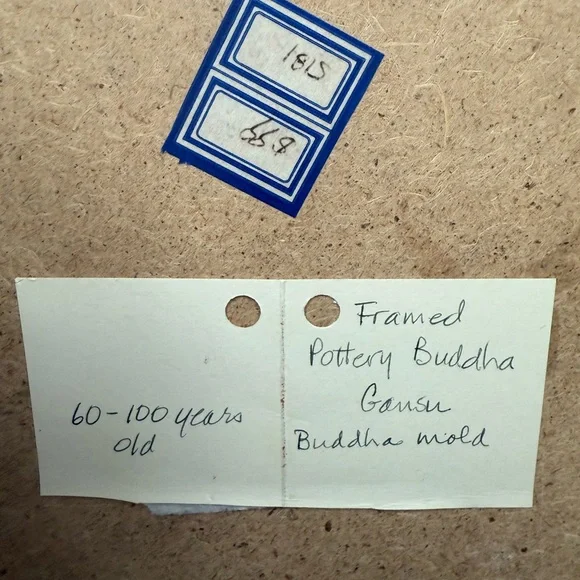 60-100 years
old
Framed
Pottery Buddha
Gansu
Buddha mold